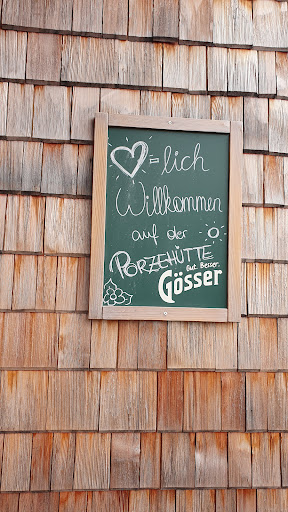 ♥=lich
Willkommen
auf der
PORZEHÜTTE
Gut. Besser.
Gösser